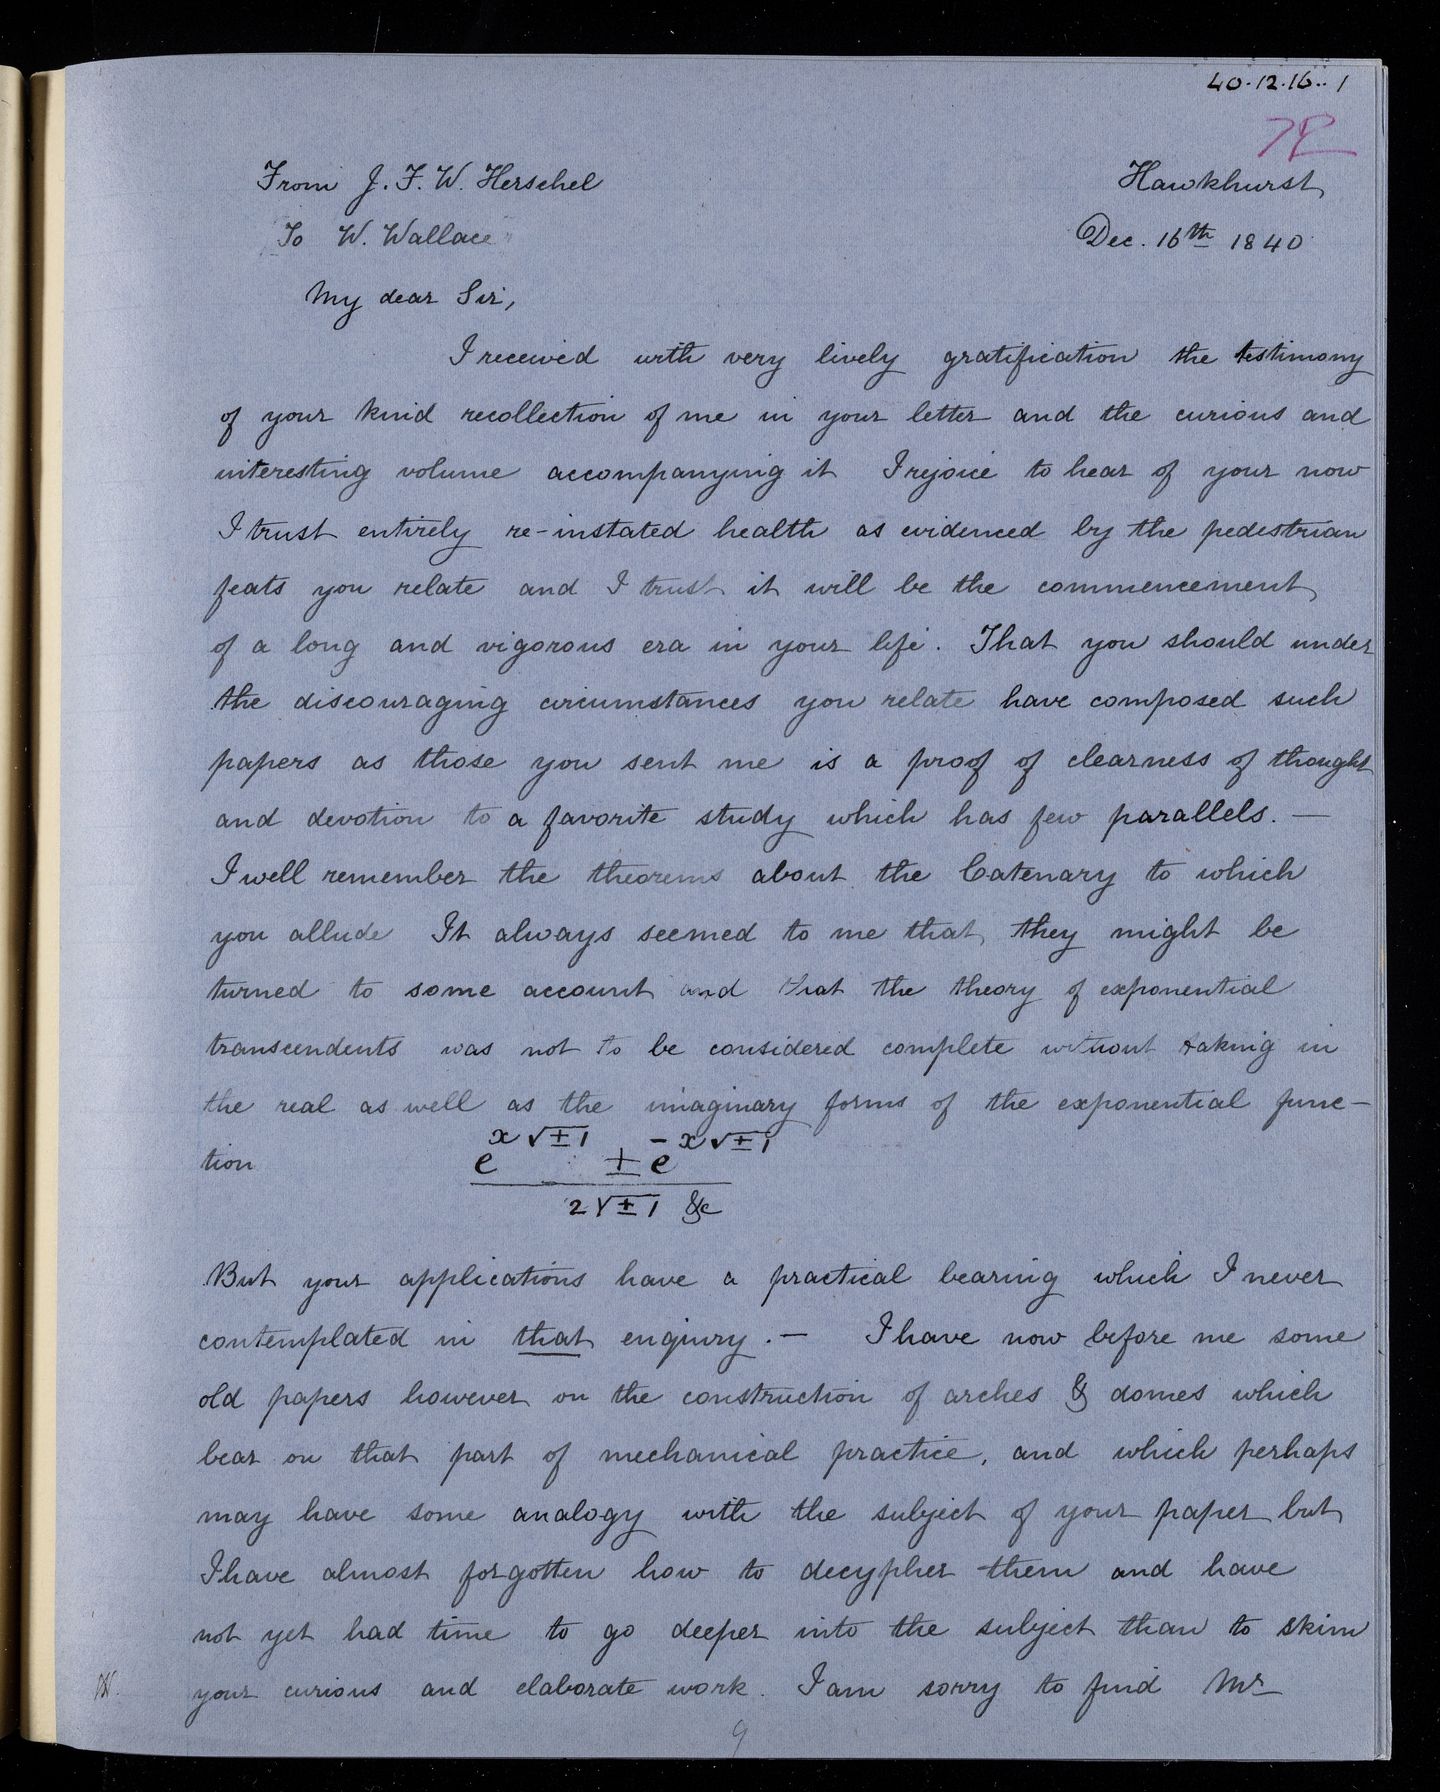 40.12.16..1
From J. F. W. Herschel
Hawkhurst
To W. Wallace
Dec. 16th 1840
My dear Sir,
I received with very lively gratification the testimony
of your kind recollection of me in your letter and the curious and
interesting volume accompanying it I rejoice to hear of your now
I trust entirely re-instated health as evidenced by the pedestrian
feats you relate and I trust it will be the commencement
of a long and vigorous era in your life. That you should under
the discouraging circumstances you relate have composed such
papers as those you sent me is a proof of clearness of thought
and devotion to a favorite study which has few parallels. —
I well remember the theorems about the Catenary to which
you allude It always seemed to me that they might be
turned to some account and that the theory of exponential
transcendents was not to be considered complete without taking in
the real as well as the imaginary forms of the exponential func-
tion
e^{x√±1} ± e^{-x√±1}
2√±1 &c
But your applications have a practical bearing which I never
contemplated in that enquiry. — I have now before me some
old papers however on the construction of arches & domes which
bear on that part of mechanical practice, and which perhaps
may have some analogy with the subject of your paper but
I have almost forgotten how to decypher them and have
not yet had time to go deeper into the subject than to skim
your curious and elaborate work. I am sorry to find Mr
9